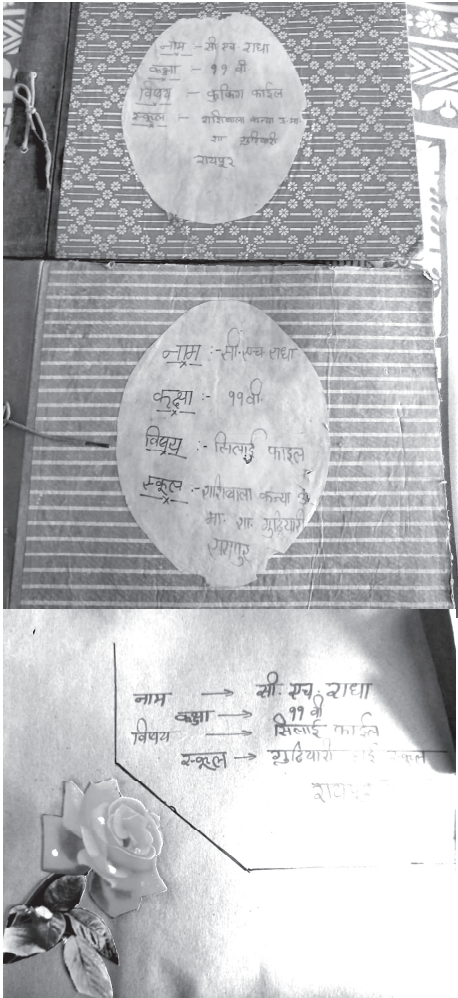 नाम :- सी. एच. राधा
कक्षा - ११ वी
विषय - कुकिंग फाईल
स्कूल - शशिबाला कन्या उ. मा.
शा. गुढ़ियारी
रायपुर
नाम :- सी. एच. राधा
कक्षा :- ११ वी.
विषय :- सिलाई फाईल
स्कूल :- शशिबाला कन्या उ.
मा. शा. गुढ़ियारी
रायपुर
नाम → सी. एच. राधा
कक्षा → ११ वी
विषय → सिलाई फाईल
स्कूल → गुढ़ियारी हाई स्कूल
रायपुर